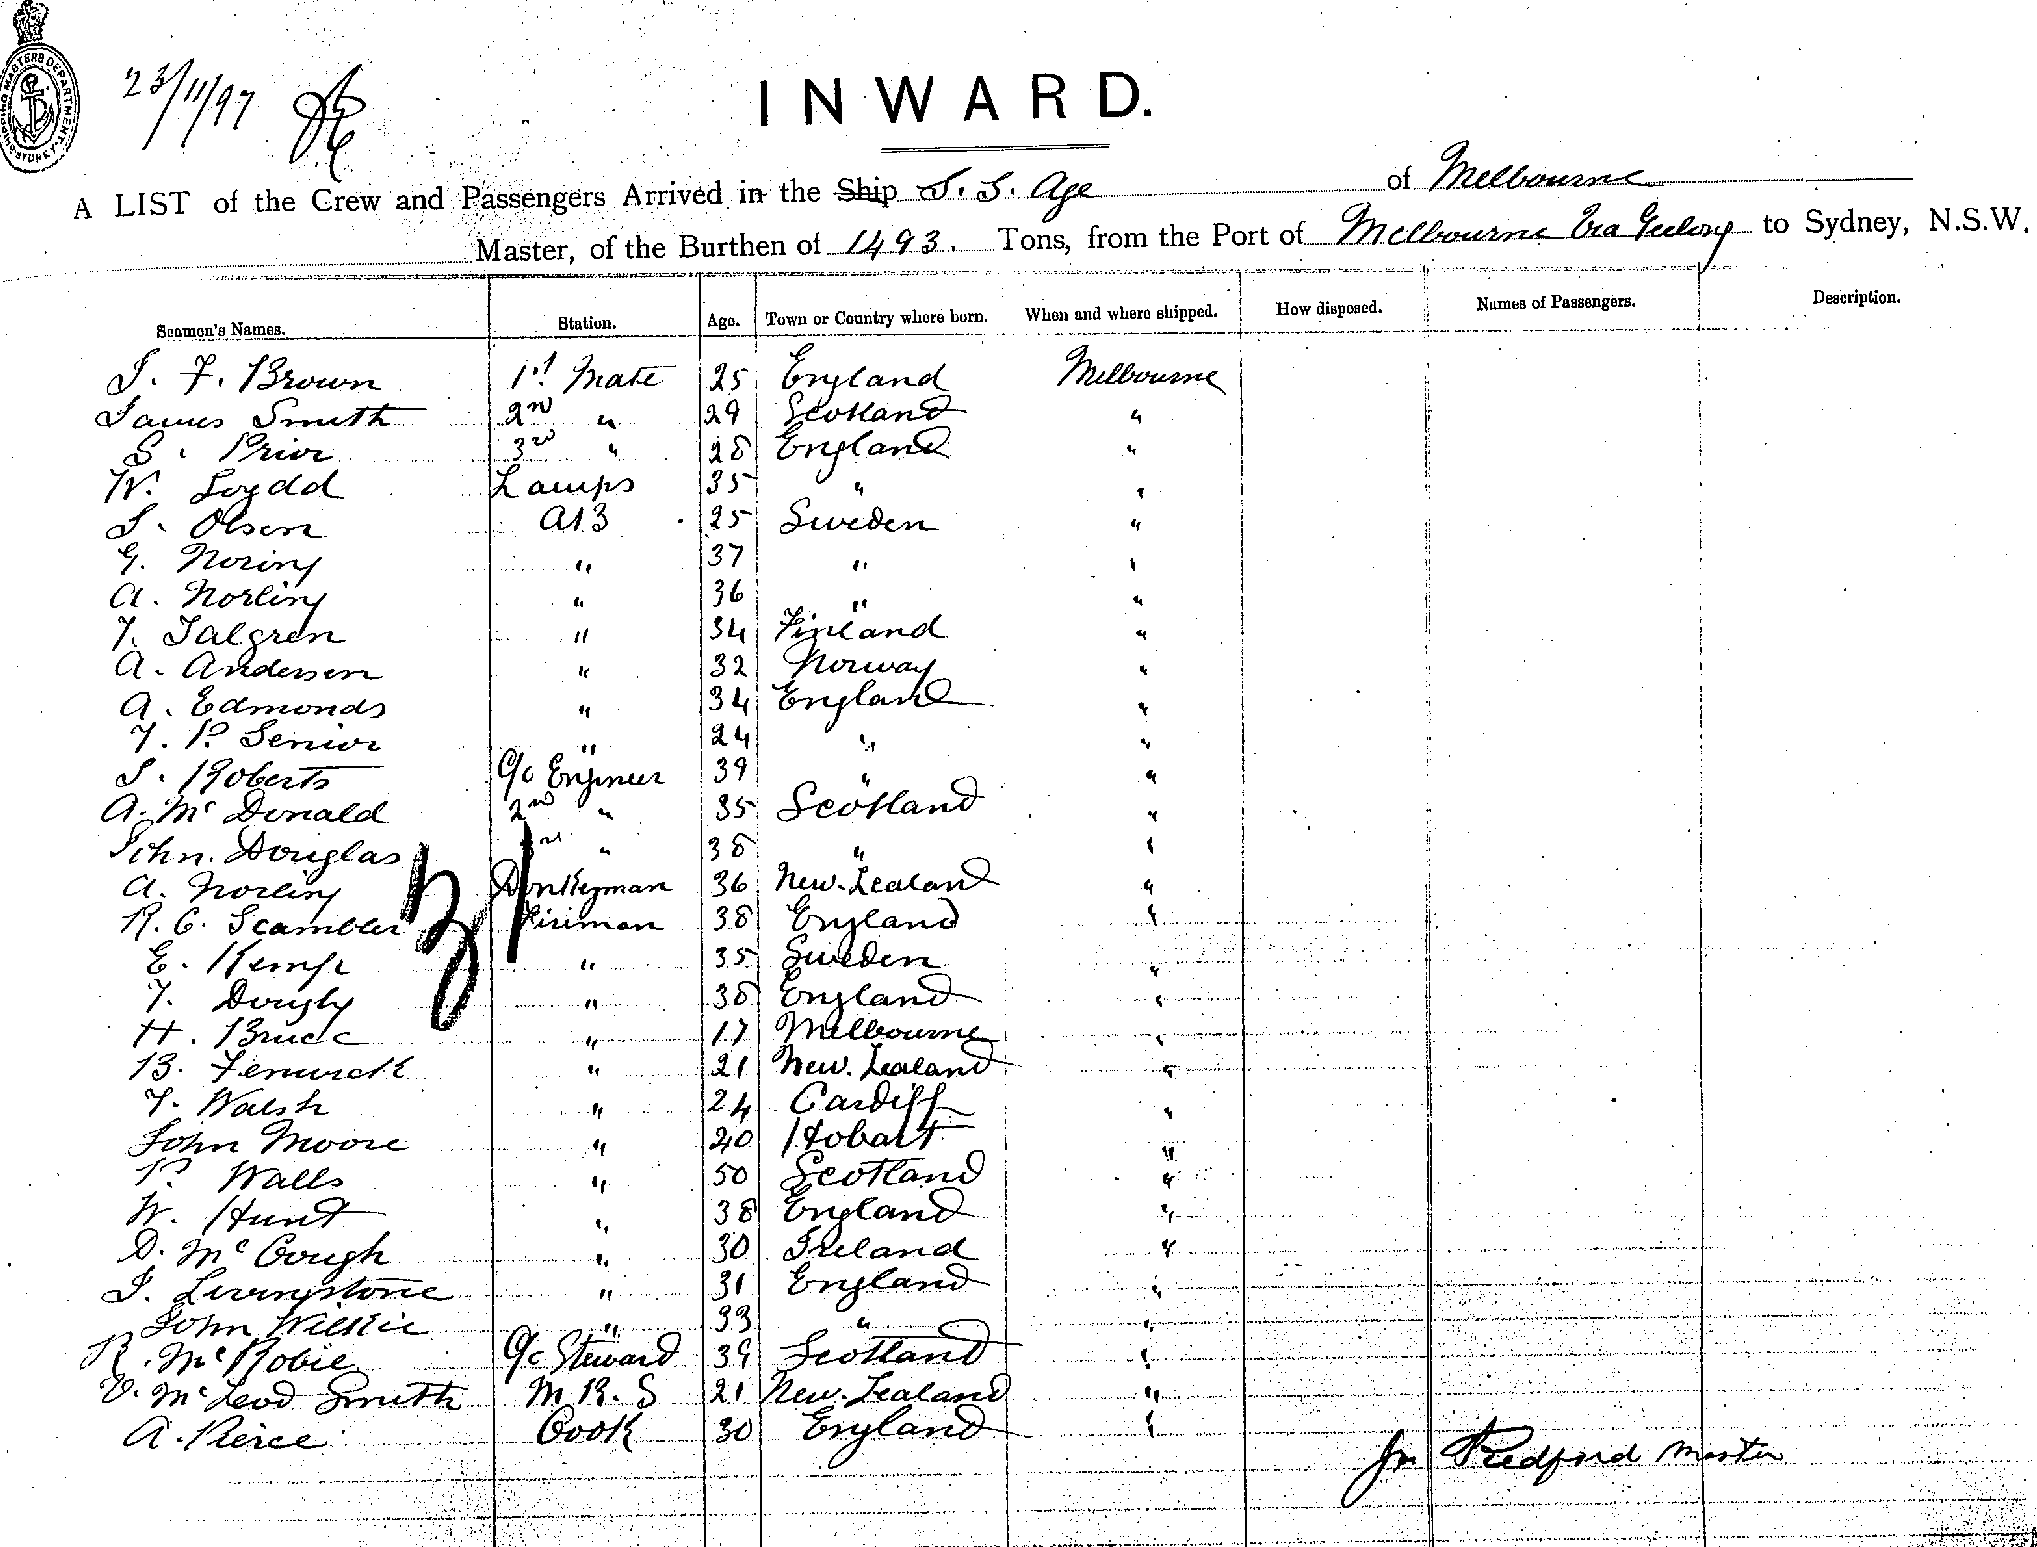 SHIPPING MASTERS DEPARTMENT SYDNEY
23/11/97
INWARD.
A LIST of the Crew and Passengers Arrived in the Ship S. S. Age of Melbourne
Master, of the Burthen of 1493. Tons, from the Port of Melbourne Via Geelong to Sydney, N.S.W.
Seamen's Names. Station. Age. Town or Country where born. When and where shipped. How disposed. Names of Passengers. Description.
J. F. Brown 1st Mate 25 England Melbourne
James Smith 2nd " 29 Scotland "
S. Prior 3rd " 28 England "
W. Loydd Lamps 35 " "
J. Olsen AB 25 Sweden "
G. Noring " 37 " "
A. Norling " 36 " "
F. Talgren " 34 Finland "
A. Andersen " 32 Norway "
A. Edmonds " 34 England "
F. P. Senior " 24 " "
J. Roberts C/o Engineer 39 " "
A. Mc Donald 2nd " 35 Scotland "
John. Douglas 3rd " 38 " "
A. Norling Donkeyman 36 New. Zealand "
R. C. Scambler Fireman 38 England "
E. Kemp " 35 Sweden "
F. " 38 England "
H. Bruce " 17 Melbourne "
B. Fenwick " 21 New. Zealand "
F. Walsh " 24 Cardiff "
John Moore " 20 Hobart "
P. Walls " 50 Scotland "
W. Hunt " 38 England "
D. Mc Gough " 30 Ireland "
J. Livingstone " 31 England "
John Wilkie " 33 " "
R. Mc Robie C/c Steward 39 Scotland "
D. Mc Leod Smith M. R. S 21 New. Zealand "
A. Pierce Cook 30 England "
31
Jn Redford Master